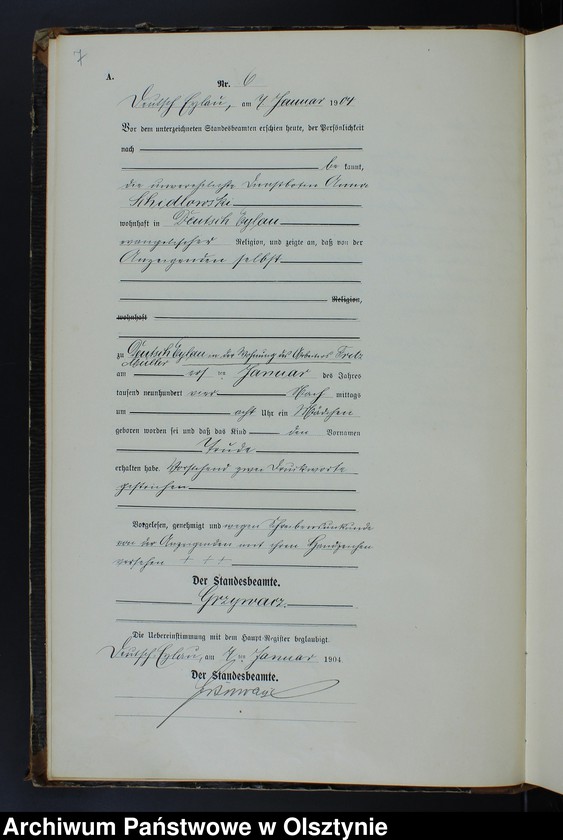 7
A.
Nr. 6
Deutsch Eylau, am 7. Januar 1904
Vor dem unterzeichneten Standesbeamten erschien heute, der Persönlichkeit
nach
be kannt,
die unverehelichte Dienstbotin Anna
Schidlowski
wohnhaft in Deutsch Eylau
evangelischer Religion, und zeigte an, daß von der
Anzeigenden selbst
Religion,
wohnhaft
zu Deutsch Eylau in der Wohnung des Arbeiters Fritz
Müller
am Januar des Jahres
tausend neunhundert vier Nach mittags
um acht Uhr ein Mädchen
geboren worden sei und daß das Kind den Vornamen
Trude
erhalten habe. Vorstehend zwei Druckworte
gestrichen
Vorgelesen, genehmigt und wegen Schreibensunkunde
von der Anzeigenden mit ihrem Handzeichen
versehen + + +
Der Standesbeamte.
Grzywacz.
Die Uebereinstimmung mit dem Haupt-Register beglaubigt.
Deutsch Eylau, am 7ten Januar 1904
Der Standesbeamte.
Grzywacz
Archiwum Państwowe w Olsztynie